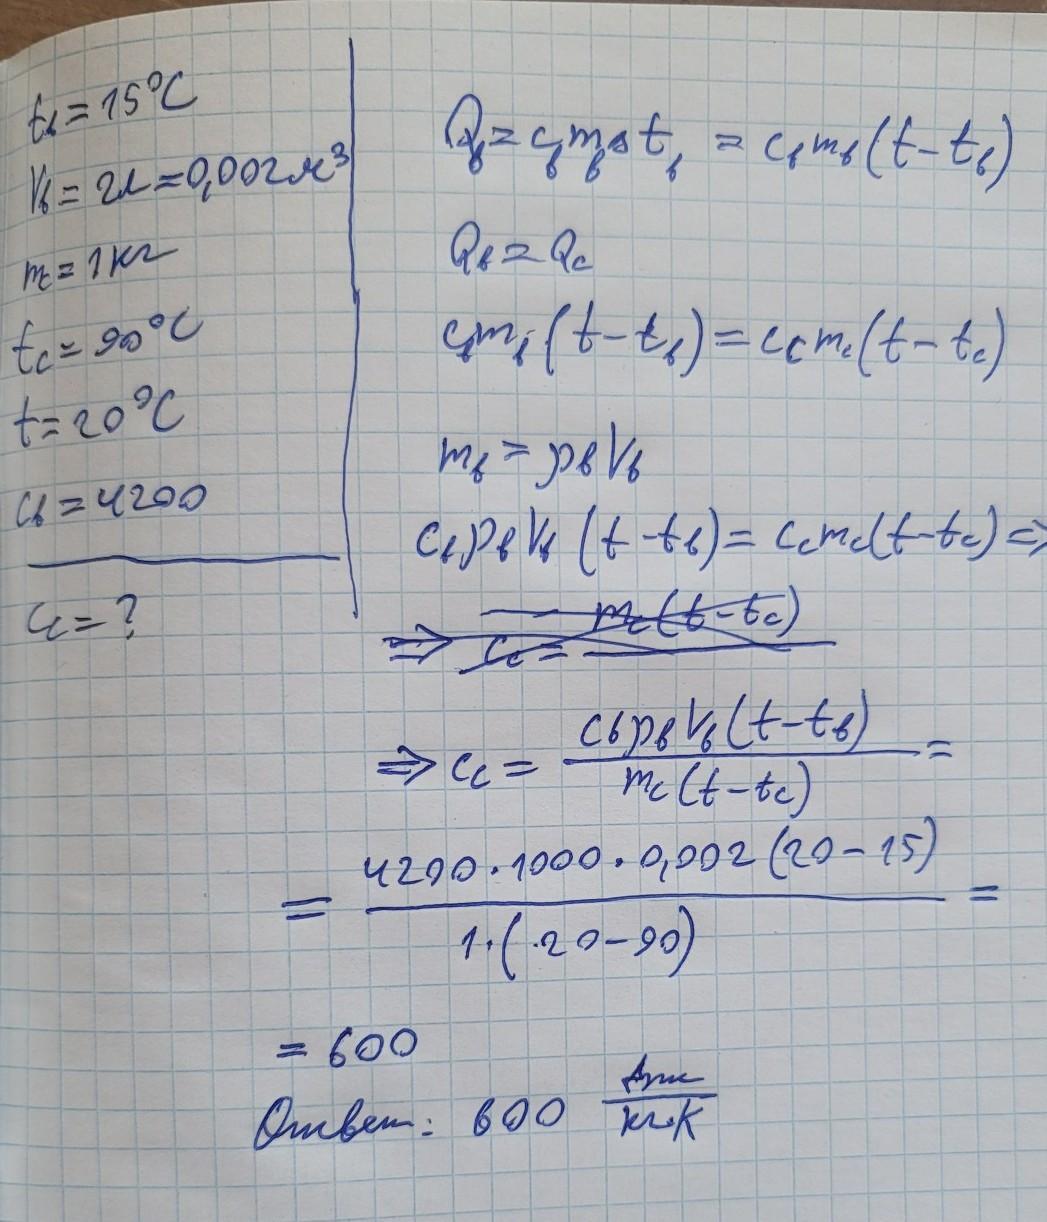 tв = 15°C
Vв = 2л = 0,002 м³
mс = 1 кг
tс = 90°C
t = 20°C
cв = 4200
cс = ?
Qв = cвmвΔtв = cвmв(t - tв)
Qв = Qс
cвmв(t - tв) = cсmс(t - tс)
mв = ρвVв
cвρвVв(t - tв) = cсmс(t - tс) ⇒
⇒ cс = mс(t - tс)
⇒ cс = cвρвVв(t - tв) / mс(t - tс) =
= 4200 · 1000 · 0,002 (20 - 15) / 1 · (20 - 90) =
= 600
Ответ: 600 Дж / кг·К